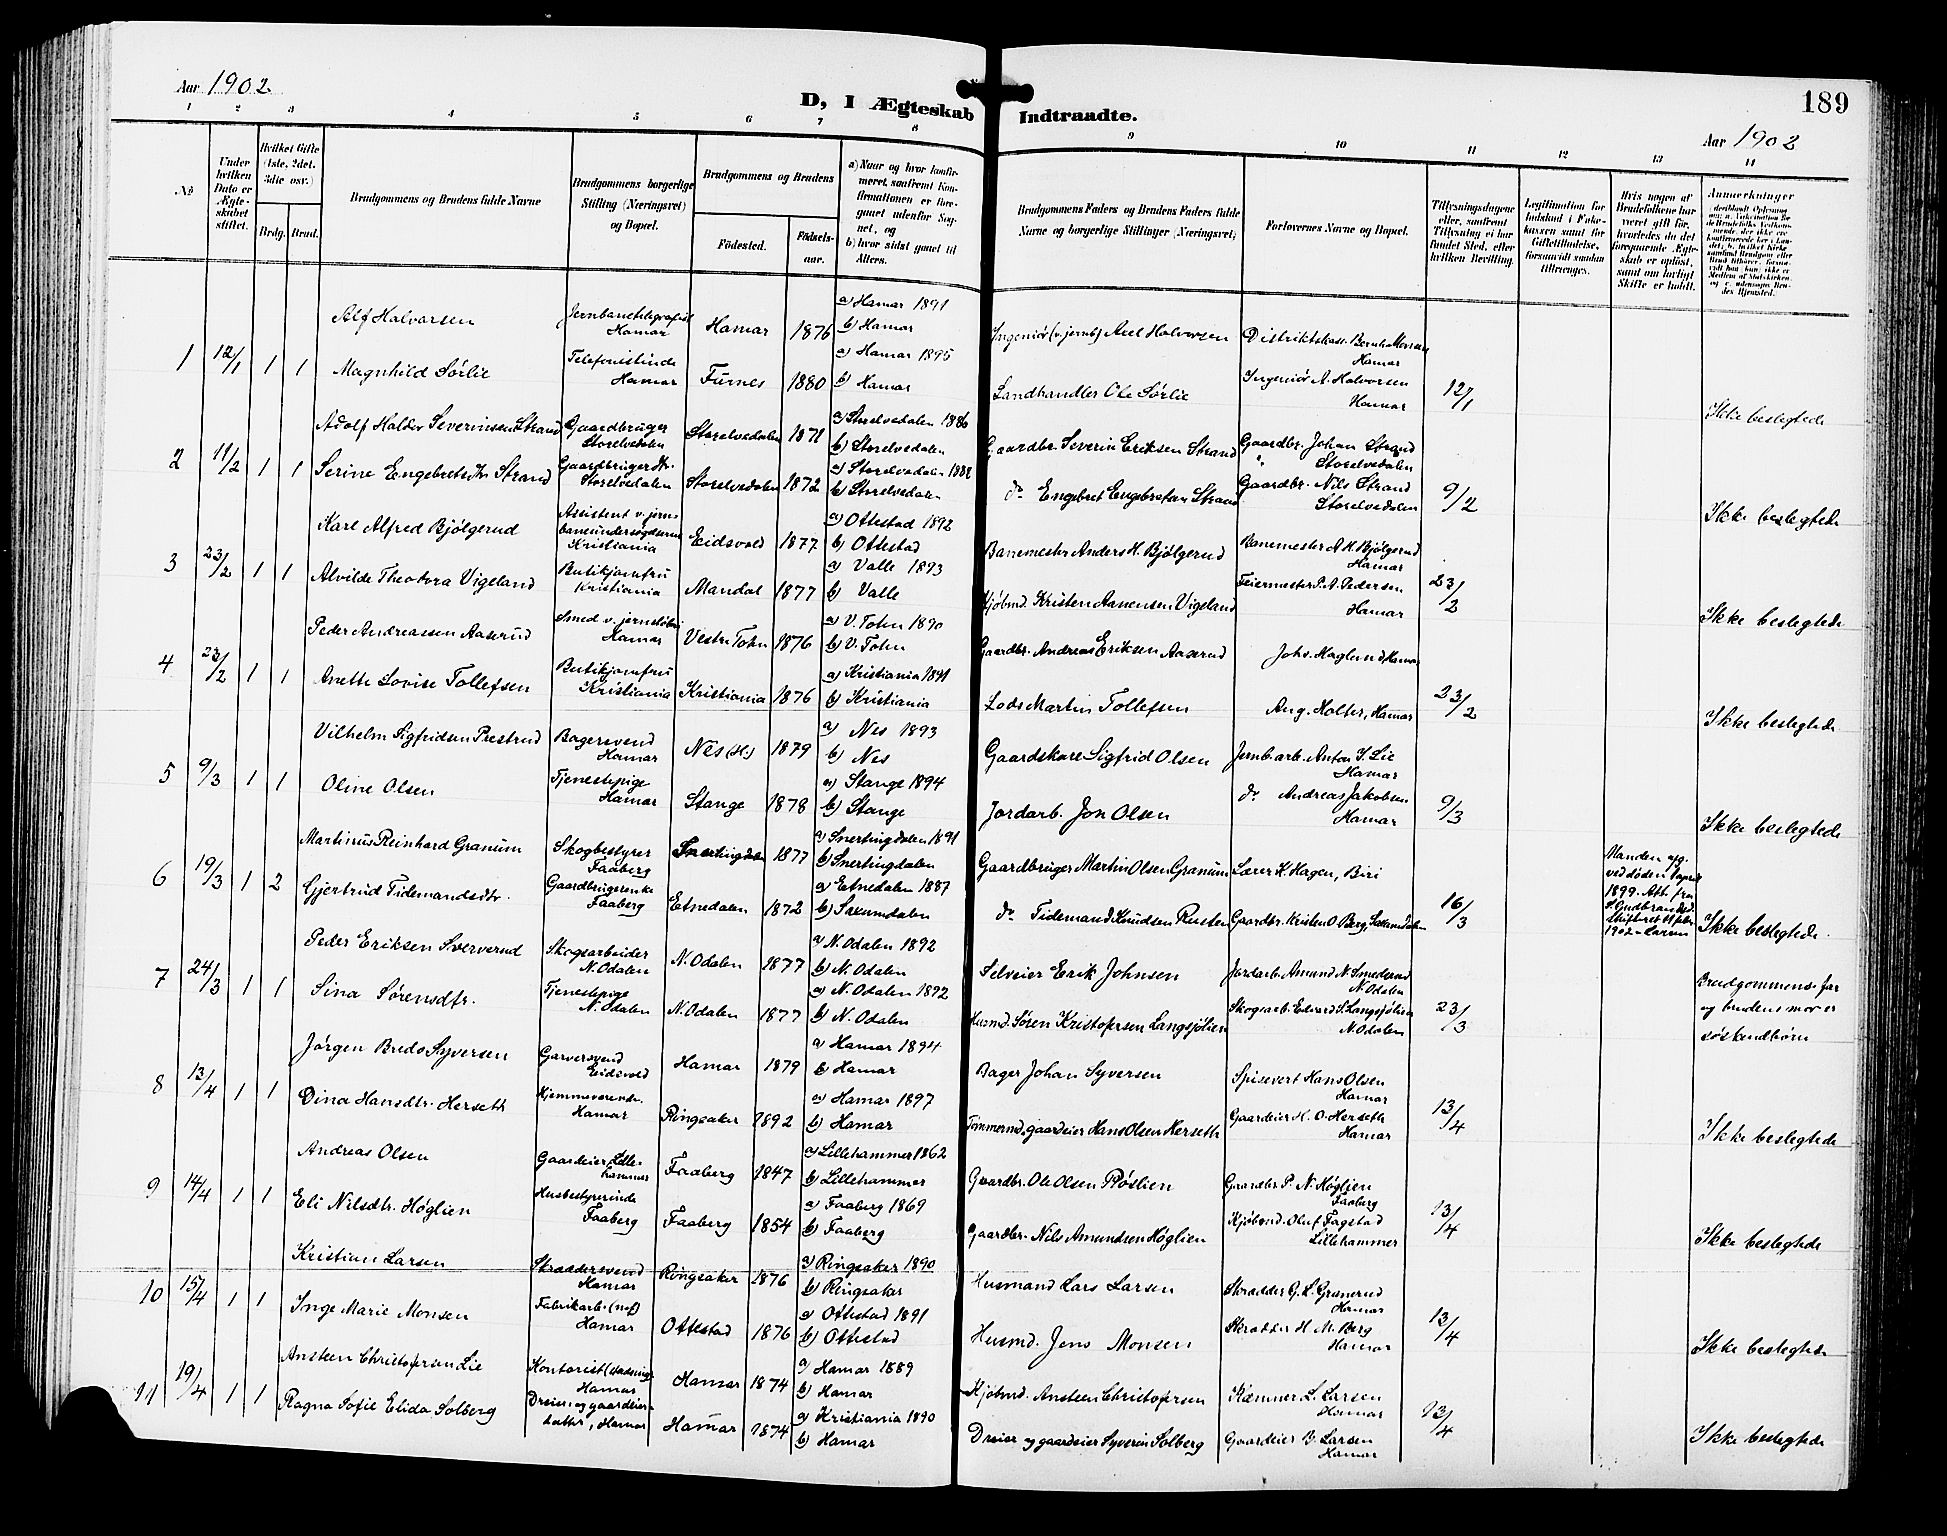 Aar 1902
D, I Ægteskab Indtraadte.
189
Aar 1902
1 2 3 4 5 6 7 8 9 10 11 12 13 14
No
Under hvilken Dato er Ægteskabet stiftet.
Hvilket Gifte (1ste, 2det, 3die osv.)
Brdg. Brud.
Brudgommens og Brudens fulde Navne
Brudgommens borgerlige Stilling (Næringsvei) og Bopæl.
Brudgommens og Brudens
Fødested.
Fødselsaar.
a) Naar og hvor konfirmeret, saafremt Konfirmationen er foregaaet udenfor Sognet, og
b) hvor sidst gaaet til Alters.
Brudgommens Faders og Brudens Faders fulde Navne og borgerlige Stillinger (Næringsvei)
Forlovernes Navne og Bopæl.
Tillysningsdagene eller, saafremt Tillysning ei har fundet Sted, efter hvilken Bevilling.
Legitimation for Indskud i Enkekassen samt for Giftetilladelse, forsaavidt saadan tiltrænges.
Hvis nogen af Brudefolkene har været gift før, hvorledes da det foregaaende Ægteskab er opløst, samt om lovligt Skifte er holdt.
Anmærkninger
1 12/1 1 1
Alf Halvorsen Jernbanetelegrafist Hamar Hamar 1876 a) Hamar 1891 b) Hamar
Ingeniør (v. jernb) Axel Halvorsen
Hamar
Magnhild Sørlie Telefonistinde Hamar Furnes 1880 a) Hamar 1895 b) Hamar
Landhandler Ole Sørlie Ingeniør A. Halvorsen Hamar 12/1 Ikke beslegtede
2 11/2 1 1
Adolf Halder Severinsen Strand Gaardbruger Storelvedalen Storelvedalen 1871 a) Storelvedalen 1886 b) Storelvedalen
Gaardbr. Severin Eriksen Strand Gaardbr. Johan Strand Storelvedalen
Serine Engebretsdtr. Strand Gaardbruger dtr. Storelvedalen Storelvedalen 1872 a) Storelvedalen 1888 b) Storelvedalen
do Engebret Engebretsen Strand Gaardbr. Nils Strand Storelvedalen 9/2 Ikke beslegtede
3 23/2 1 1
Karl Alfred Bjølgerud Assistent v. jernbaneundersøgelserne Kristiania Eidsvold 1877 a) Ottestad 1892 b) Ottestad
Banemester Anders H. Bjølgerud Banemester A H. Bjølgerud Hamar
Alvilde Theodora Vigeland Butikjomfru Kristiania Mandal 1877 a) Valle 1893 b) Valle
Kjøbmd. Kristen Aanensen Vigeland Feiermester P. A. Pedersen Hamar 23/2 Ikke beslegtede
4 23/2 1 1
Peder Andreassen Aaserud Smed v. jernstøberi Hamar Vestre Toten 1876 a) V. Toten 1890 b) V. Toten
Gaardbr. Andreas Eriksen Aaserud Johs. Haglund Hamar
Anette Lovise Tollefsen Butikjomfru Kristiania Kristiania 1876 a) Kristiania 1891 b) Kristiania
Lods Martin Tollefsen Aug. Holter, Hamar 23/2 Ikke beslegtede
5 9/3 1 1
Vilhelm Sigfridsen Prestrud Bagersvend Hamar Nes (H.) 1879 a) Nes 1893 b) Nes
Gaardskare Sigfrid Olsen Jernb.arb. Anton J. Lie Hamar
Oline Olsen Tjenestepige Hamar Stange 1878 a) Stange 1894 b) Stange
Jordarb. Jon Olsen do Andreas Jakobsen Hamar 9/3 Ikke beslegtede
6 19/3 1 2
Martinus Reinhard Granum Skogbestyrer Faaberg Snertingdalen 1877 a) Snertingdalen 1891 b) Snertingdalen
Gaardbruger Martin Olsen Granum Lærer K. Hagen, Biri
Gjertrud Tidemandsdtr. Gaardbrugerenke Faaberg Etnedalen 1872 a) Etnedalen 1887 b) Saxumdalen
do Tidemand Knudsen Rusten Gaardbr. Kristen O Berg, Saxumdalen 16/3
Manden afg. ved døden
1899. Att. fra S. Gudbrandsd. skifteret
1902
Ikke beslegtede.
7 24/3 1 1
Peder Eriksen Sververud Skogsarbeider N. Odalen N. Odalen 1877 a) N. Odalen 1892 b) N. Odalen
Selveier Erik Johnsen Jordarb. Amund N. Smedsrud N. Odalen
Sina Sørensdtr. Tjenestepige N. Odalen N. Odalen 1877 a) N. Odalen 1892 b) N. Odalen
Husmd. Søren Kristofersen Langsjølien Skogsarb. Edvard S. Langsjølien N. Odalen 23/3
Brudgommens far og brudens mor er søskendbørn
8 13/4 1 1
Jørgen Bredo Syversen Garversvend Eidsvold Hamar 1879 a) Hamar 1894 b) Hamar
Bager Johan Syversen Spisevert Hans Olsen Hamar
Dina Hansdtr. Herseth Hjemmeværende. Hamar Ringsaker 1892 a) Hamar 1897 b) Hamar
Tømmermd, gaardeier Hans Olsen Herseth Gaardeier H. O. Herseth Hamar 13/4 Ikke beslegtede
9 14/4 1 1
Andreas Olsen Gaardeier, Lillehammer Faaberg 1847 a) Lillehammer 1862 b) Lillehammer
Gaardbr. Ole Olsen Røslien Gaardbr P. N. Høglien Faaberg
Eli Nilsdtr. Høglien Husbestyrerinde Faaberg Faaberg 1854 a) Faaberg 1869 b) Faaberg
Gaardbr. Nils Amundsen Høglien Kjøbmd. Oluf Fagstad Lillehammer 13/4 Ikke beslegtede
10 15/4 1 1
Kristian Larsen Skræddersvend Hamar Ringsaker 1876 a) Ringsaker 1890 b) Ringsaker
Husmand Lars Larsen Skrædder G. L. Granerud Hamar
Inge Marie Monsen Fabrikarb. Hamar Ottestad 1876 a) Ottestad 1891 b) Ottestad
Husmd. Jens Monsen Skrædder H. M. Berg Hamar 13/4 Ikke beslegtede
11 19/4 1 1
Ansteen Christofersen Lie Kontorist Hamar Hamar 1874 a) Hamar 1889 b) Hamar
Kjøbmd. Ansteen Christofersen Kæmner L. Larsen Hamar
Ragna Sofie Elida Solberg Dreier og gaardeierdatter, Hamar Hamar 1874 a) Kristiania 1890 b) Hamar
Dreier og gaardeier Syverin Solberg Gaardeier Y. Larsen Hamar 13/4 Ikke beslegtede